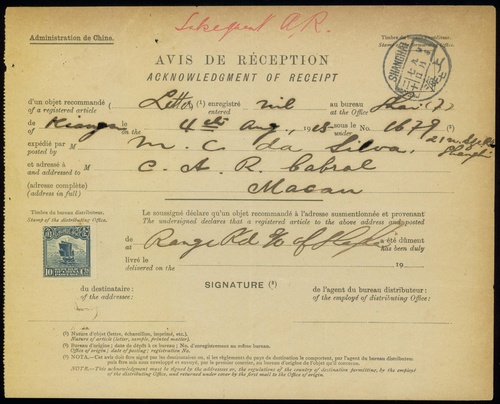 Subsequent A.R.
Administration de Chine.
Timbre du bureau
Stamp of the
Office.
SHANGHAI
上海
AVIS DE RÉCEPTION
ACKNOWLEDGMENT OF RECEIPT
d'un objet recommandé Letter (¹) enregistré nil au bureau (7)
of a registered article entered at the Office
de le 4th Aug, 1928 sous le No. 1679
the under
expédié par M. C. da Silva, 21
posted by
et adressé à C. A. R. Cabral
and addressed to
(adresse complète) Macau
(address in full)
Timbre du bureau distributeur.
Stamp of the distributing Office.
Le soussigné déclare qu'un objet recommandé à l'adresse susmentionnée et provenant
The undersigned declares that a registered article to the above address and posted
de Range Rd a été dûment
at has been duly
livré le 19
delivered on the
10 10
SIGNATURE (³)
du destinataire: de l'agent du bureau distributeur:
of the addressee: of the employé of distributing Office:
(¹) Nature d'objet (lettre, échantillon, imprimé, etc.).
Nature of article (letter, sample, printed matter).
(²) Bureau d'origine; date du dépôt à ce bureau; No. d'enregistrement au même bureau.
Office of origin; date of posting; registration No.
(³) NOTA.—Cet avis doit être signé par le destinataire ou, si les règlements du pays de destination le comportent, par l'agent du bureau distributeur,
puis être mis sous enveloppe et renvoyé, par le premier courrier, au bureau d'origine de l'objet qu'il concerne.
NOTE.—This acknowledgment must be signed by the addressee, or, the regulations of the country of destination permitting, by the employé
of the distributing Office, and returned under cover by the first mail to the Office of origin.